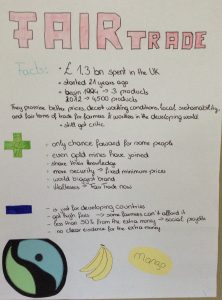 FAIR TRADE
Facts:
• £ 1.3 bn spent in the UK
• started 21 years ago
• begin 1994 → 3 products
2012 → 4500 products
They promise better prices, decent working conditions, local sustainability,
and fair terms of trade for farmers & workers in the developing world
• still get critic
+
• only chance forward for some people
• even gold mines have joined
• share their knowledge
• more security → fixed minimum prices
• world biggest brand
• Maltesers → Fair Trade now
-
• is just for developing countries
• get high fees → some farmers can't afford it
• less than 50% from the extra money → social projects
• no clear evidence for the extra money
Mango